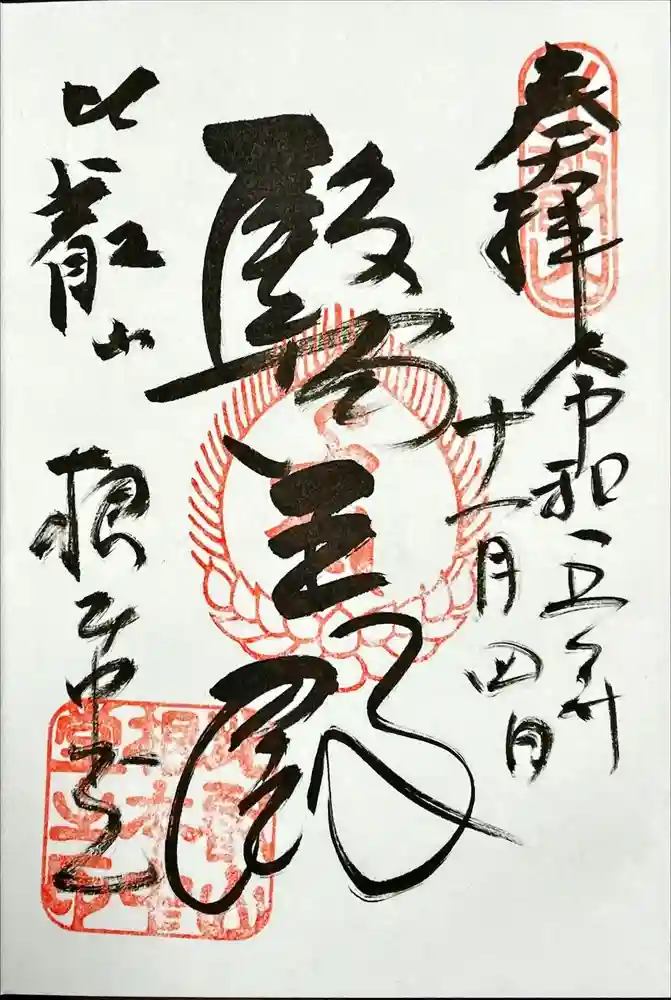 奉拝
令和五年
十一月四日
醫王殿
比叡山
根本中堂